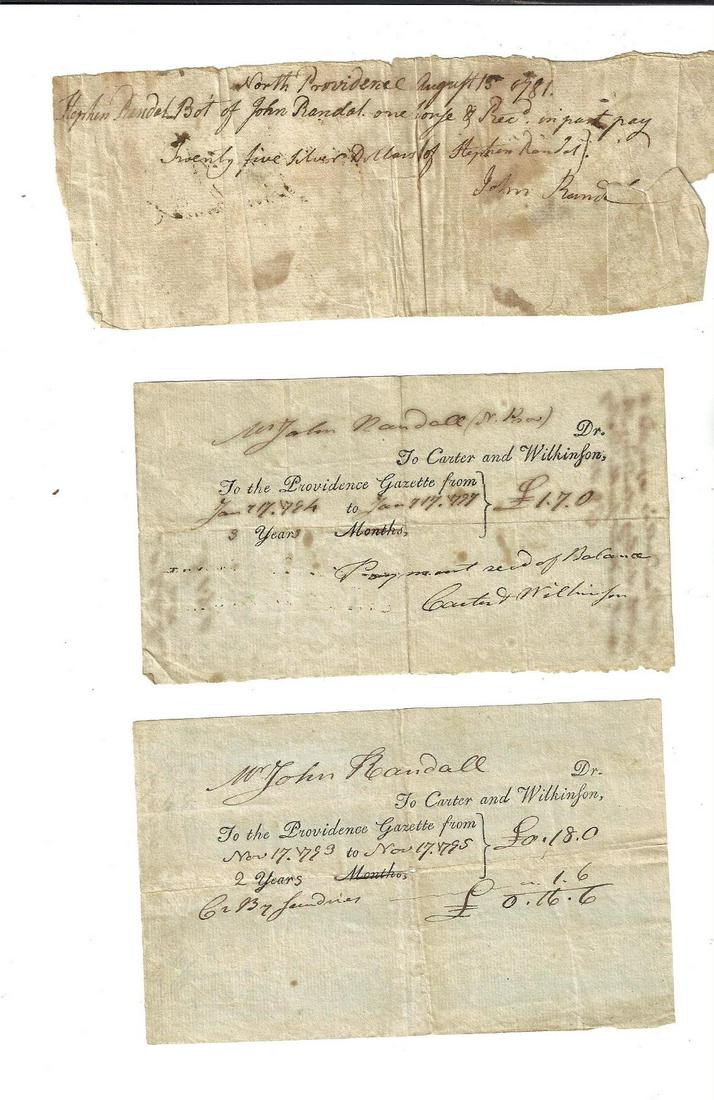 North Providence August 15 1781.
Stephen Randal Bot of John Randal one horse & Recd. in part pay
Twenty five Silver Dollars of Stephen Randal.
John Randal
Mr John Randall (N. Prov)
Dr.
To Carter and Wilkinson,
To the Providence Gazette from
Jany 17. 1794 to Jany 17. 1797 £1.7.0
3 Years Months,
Payment recd of Balance
Carter & Wilkinson
Mr John Randall
Dr.
To Carter and Wilkinson,
To the Providence Gazette from £0.18.0
Nov 17. 1793 to Nov 17. 1795
2 Years Months, 1.6
Cr By Sundries £ 0.16.6